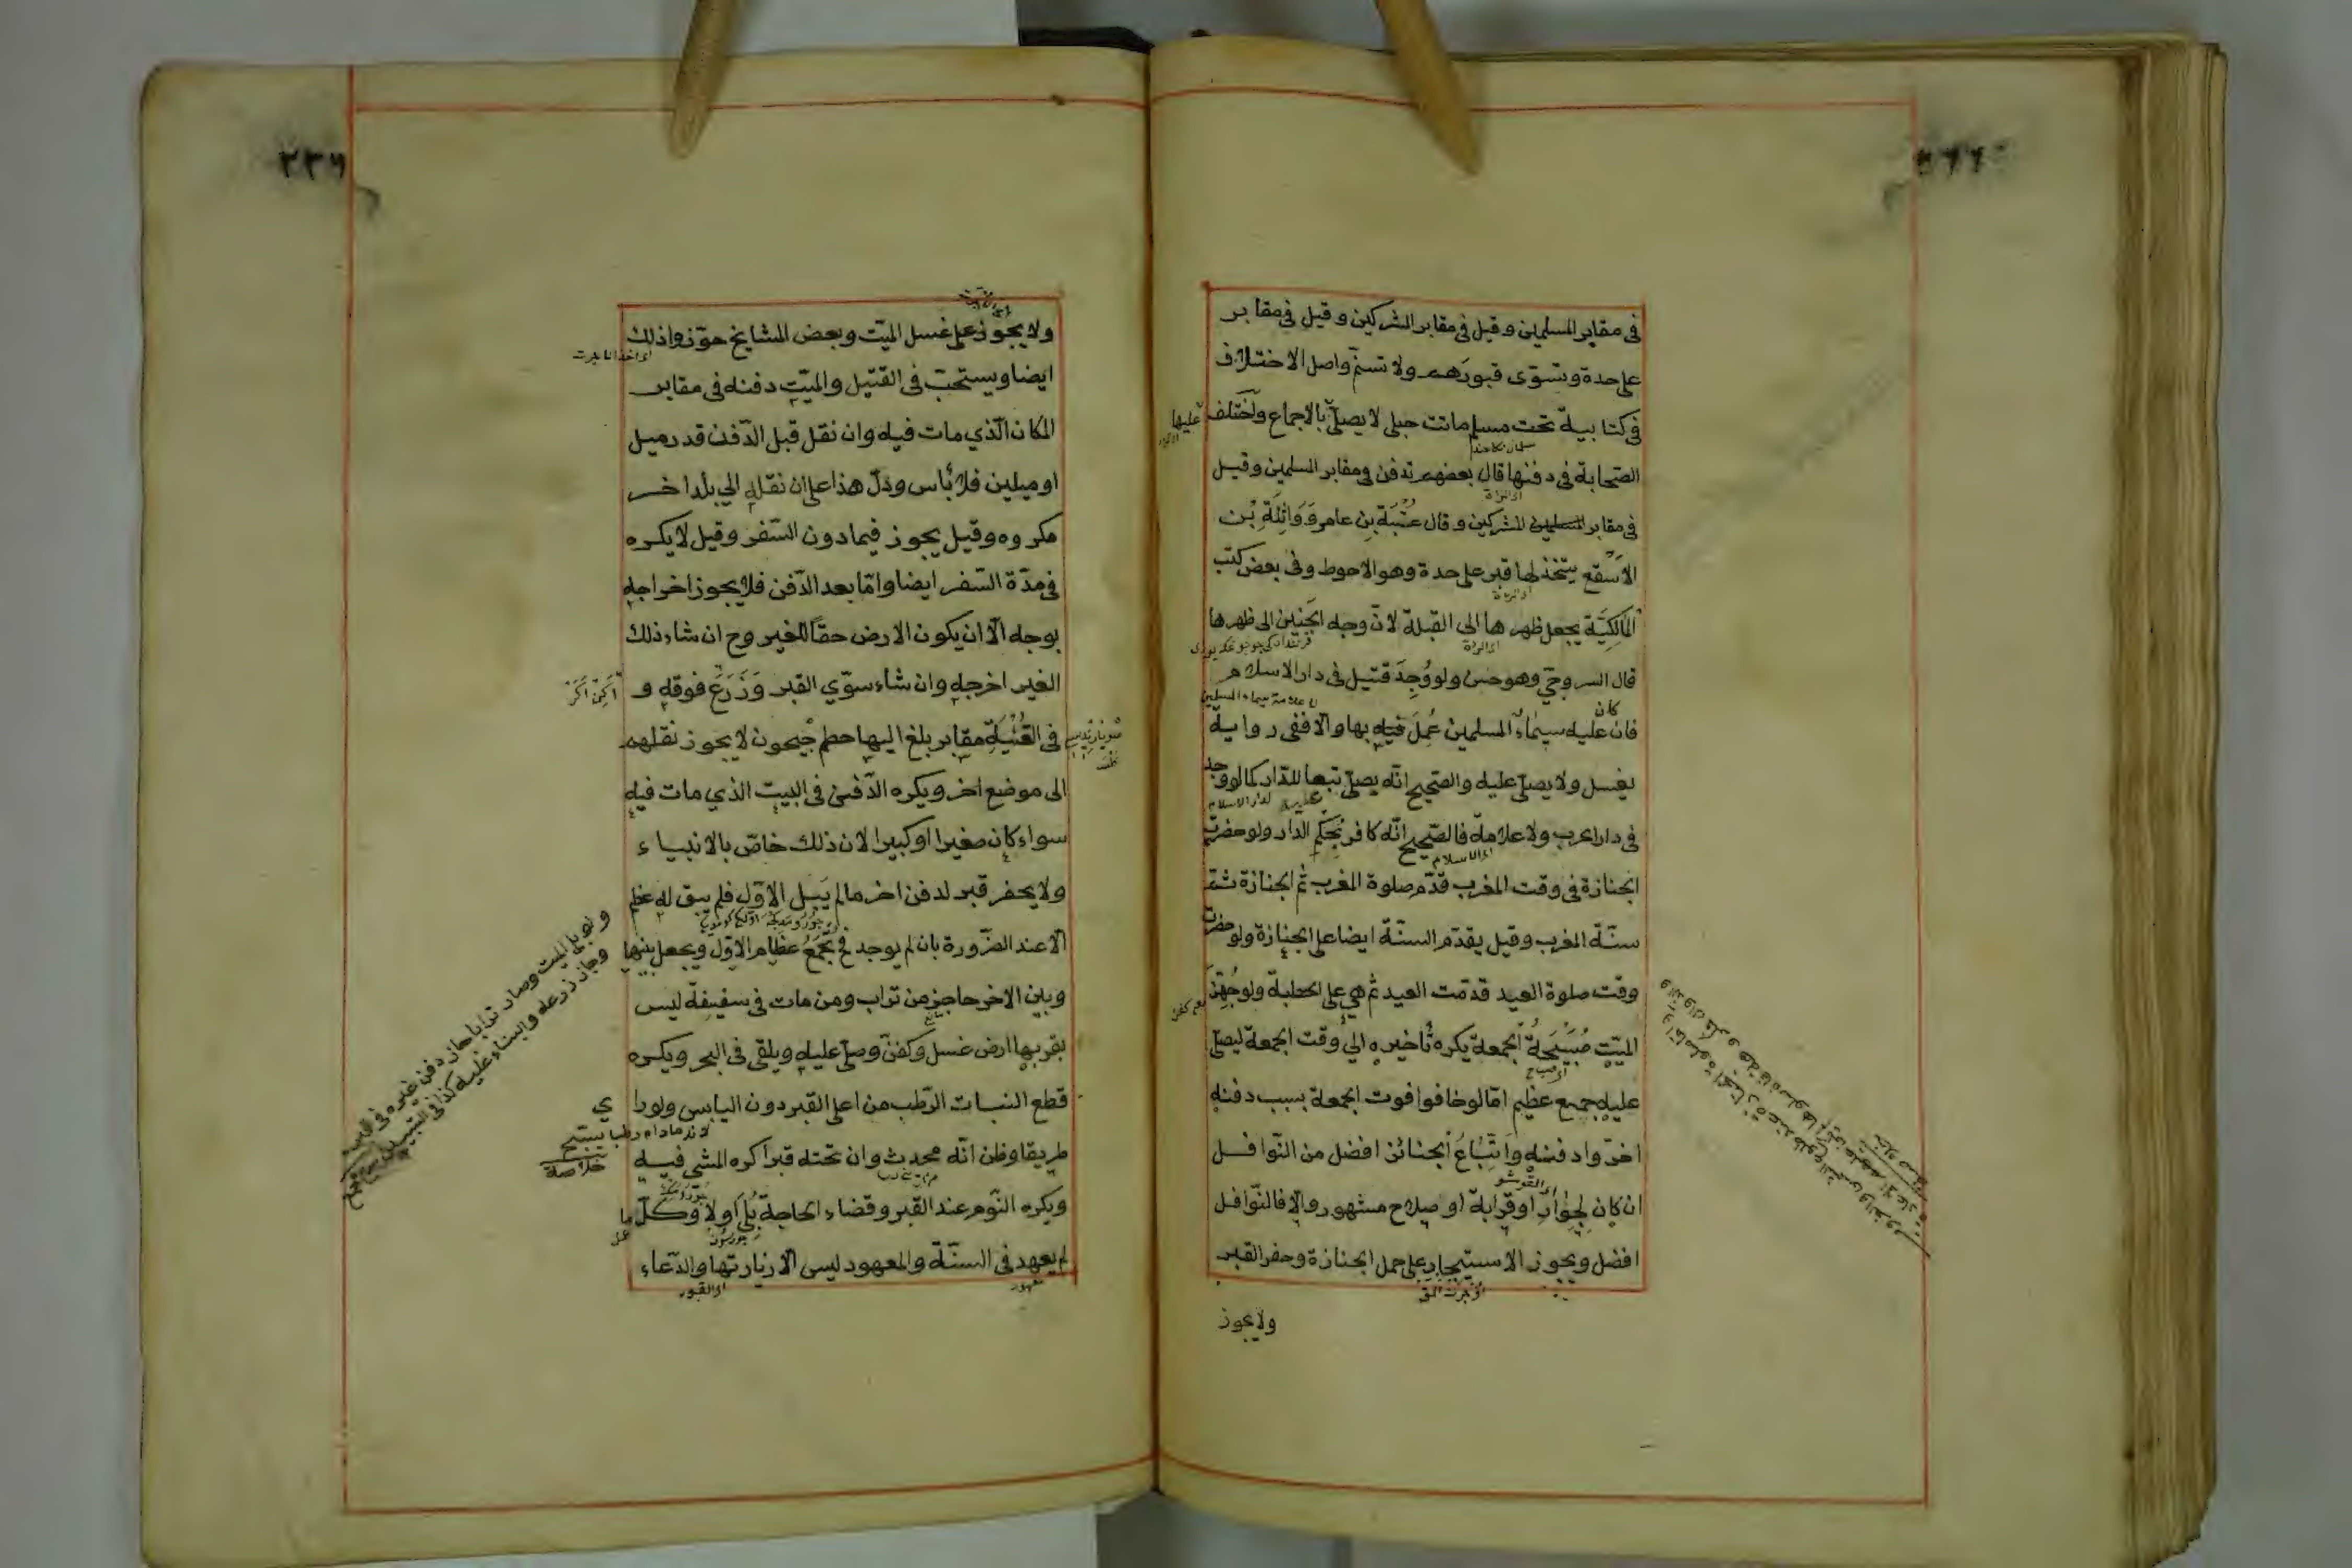 في مقابر المسلمين وقيل في مقابر المشركين وقيل في مقابر
على حدة وتسوّى قبورهم ولا تسنّم واصل الاختلاف
في كتابية تحت مسلم ماتت حبلى لا يصلّى بالاجماع واختلف
عليها
الصحابة في دفنها قال بعضهم تدفن في مقابر المسلمين وقيل
في مقابر المسلمين المشركين وقال عتبة بن عامر وَوَاثِلَةِ بْن
الاَسْقع يتّخذ لها قبر على حدة وهو الاحوط وفي بعض كتب
المالكيّة يجعل ظهرها الى القبلة لانّ وجه الجنين الى ظهرها
قال السروجي وهو حسن ولو وُجِدَ قتيل في دار الاسلام
كان
فان عليه سيماء المسلمين عُمِلَ فيه بها والّا ففي رواية
يغسل ولا يصلّى عليه والصّحيح انّه يصلّى تبعا للدّار كما لو وجد
لدار الاسلام
في دار الحرب ولا علامة فالصّحيح انّه كافر بحكم الدار ولو حضرت
الجنازة في وقت المغرب قدّم صلوة المغرب ثم الجنازة ثمّ
سنّة المغرب وقيل يقدّم السنّة ايضا على الجنازة ولو حضرت
وقت صلوة العيد قدّمت العيد ثم هي على الخطبة ولو جُهِّزَ
الميّت صُبَيْحَةُ الجمعة يكره تأخيره الى وقت الجمعة ليصلّي
عليه جمع عظيم امّا لو خافوا فوت الجمعة بسبب دفنه
اخّروا دفنه وَاِتِّبَاعُ الجنائز افضل من النّوافل
ان كان لِجِوَارٍ او قرابة او صلاح مشهور والّا فالنّوافل
افضل ويجوز الاستيجار على حمل الجنازة وحفر القبر
ولا يجوز
٢٣٦
ولا يجوز على غسل الميّت وبعض المشايخ جوّزوا ذلك
ايضا ويستحبّ في القتيل والميّت دفنه في مقابر
المكان الّذي مات فيه وان نقل قبل الدّفن قدر ميل
او ميلين فلا بأس ودلّ هذا على ان نقله الى بلد اخر
مكروه وقيل يجوز فيما دون السّفر وقيل لا يكره
في مدّة السّفر ايضا وامّا بعد الدّفن فلا يجوز اخراجه
بوجه الّا ان يكون الارض حقّا للغير وح ان شاء ذلك
الغير اخرجه وان شاء سوّي القبر وَزَرَعَ فوقه و
في القُنْيَةِ مقابر بلغ اليها حطم جيحون لا يجوز نقلهم
الى موضع اخر ويكره الدّفن في البيت الذي مات فيه
سواء كان صغيرا او كبيرا لان ذلك خاصّ بالانبياء
ولا يحفر قبر لدفن اخر ما لم يَبْلَ الاوّل فلم يبق له عظم
الّا عند الضّرورة بان لم يوجد فح تجمع عظام الاوّل ويجعل بينها
وبين الاخر حاجز من تراب ومن مات في سفينة ليس
بقربها ارض غسل وكفن وصلّى عليه ويلقى في البحر ويكره
قطع النبات الرّطب من اعلى القبر دون اليابس ولو راى
لانه ما دام رطبا يسبّح
خلاصة
طريقا وظن انّه محدث وان تحته قبرا كره المشي فيه
ويكره النّوم عند القبر وقضاء الحاجة بَلْ اَولى وكلّ ما
لم يعهد في السنّة والمعهود ليس الّا زيارتها والدّعاء
اي القبور
ولو بلي الميت وصار ترابا جاز دفن غيره في قبره
وجاز زرعه والبناء عليه كذا في التبيين